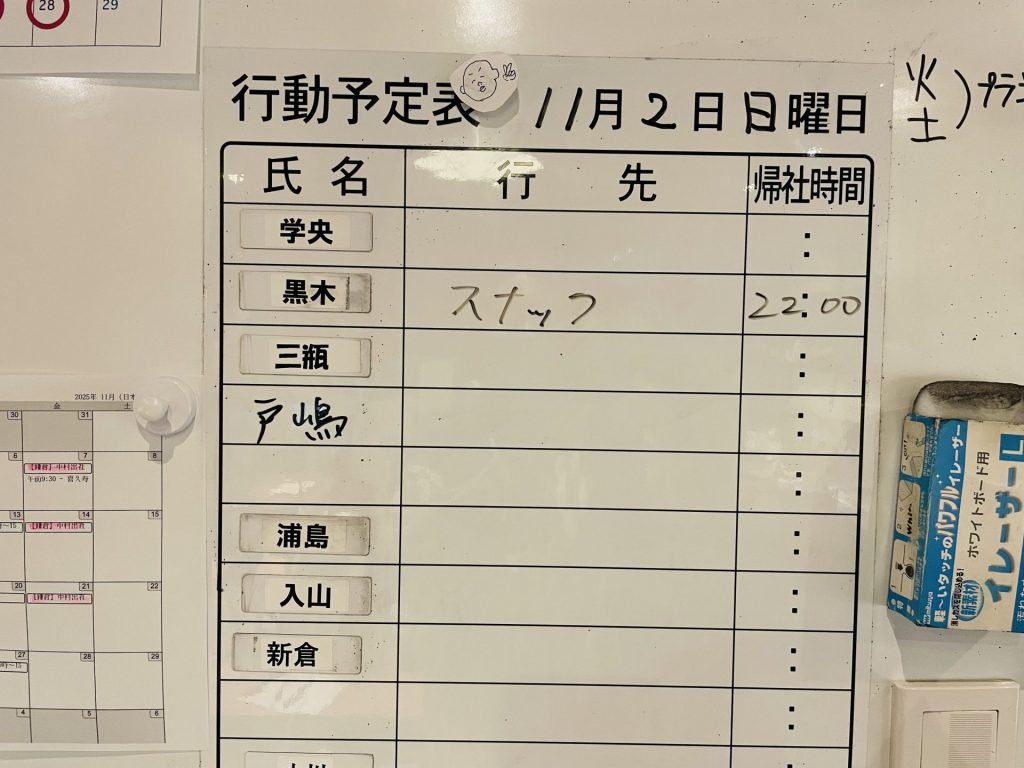 28 29
行動予定表 11月2日日曜日
火
土
)プラ
氏名 行先 帰社時間
学央 :
黒木 スナック 22:00
三瓶 :
戸嶋 :
:
浦島 :
入山 :
新倉 :
:
2025年 11月
金 土
30 31
6 7 8
【鎌倉】中村出社
午前9:30 - 喜久寿
13 14 15
~15 【鎌倉】中村出社
20 21 22
【鎌倉】中村出社
27 28 29
~15
4 5 6
軽~いタッチのパワフルイレーザー
ホワイトボード用
イレーザーL
新素材